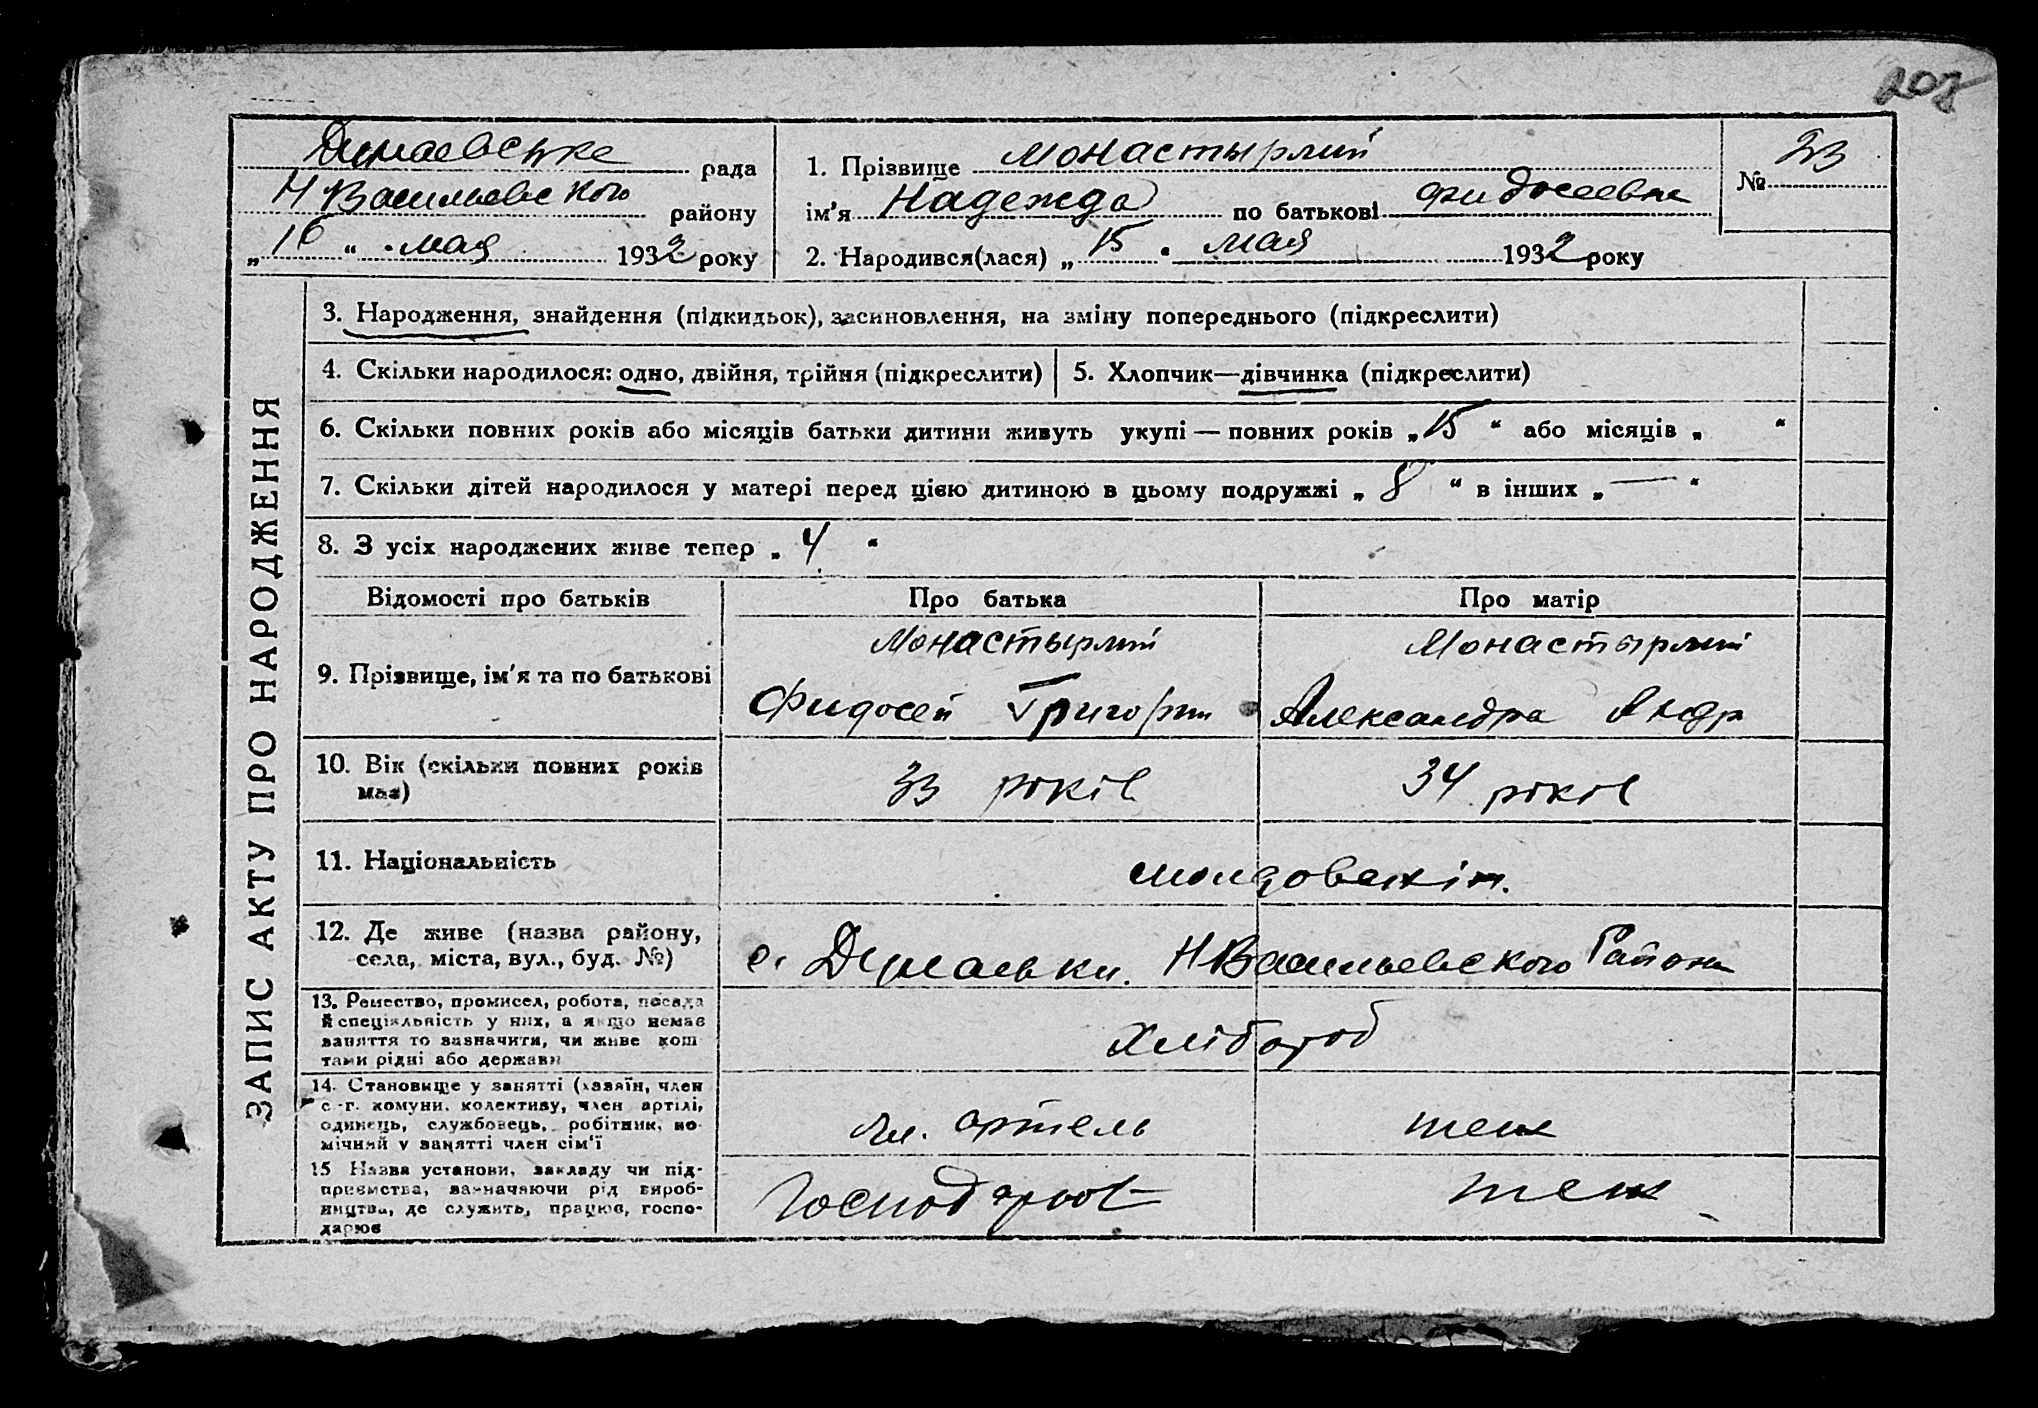 208
Думаевське рада
НВасильевского району
„16“ мая 1932 року
1. Прізвище Монастырлий
ім'я Надежда по батькові Фидосеевна
2. Народився(лася) „15" мая 1932 року
№ 33
ЗАПИС АКТУ ПРО НАРОДЖЕННЯ
3. Народження, знайдення (підкидьок), засиновлення, на зміну попереднього (підкреслити)
4. Скільки народилося: одно, двійня, трійня (підкреслити)
5. Хлопчик—дівчинка (підкреслити)
6. Скільки повних років або місяців батьки дитини живуть укупі — повних років „15“ або місяців „ “
7. Скільки дітей народилося у матері перед цією дитиною в цьому подружжі „8“ в інших „—“
8. З усіх народжених живе тепер „4“
Відомості про батьків
Про батька
Про матір
9. Прізвище, ім'я та по батькові
Монастырлий
Фидосей Григории
Монастырлий
Александра Андр
10. Вік (скільки повних років
має)
33 років
34 років
11. Національність
молдованін.
12. Де живе (назва району,
села, міста, вул., буд. №)
с. НВасильевского Района
13. Ремество, промисел, робота, посада
й спеціяльність у них, а якщо немає
заняття то зазначити, чи живе кош
тами рідні або держави
Хлібороб
14. Становище у занятті (хазяїн, член
с.-г. комуни, колективу, член артілі,
одинець, службовець, робітник, по-
мічний у занятті член сім'ї
чл. артель
теж
15 Назва установи, закладу чи під-
приємства, зазначаючи рід вироб-
ництва, де служить, працює, госпо-
дарює
Господарює
теж